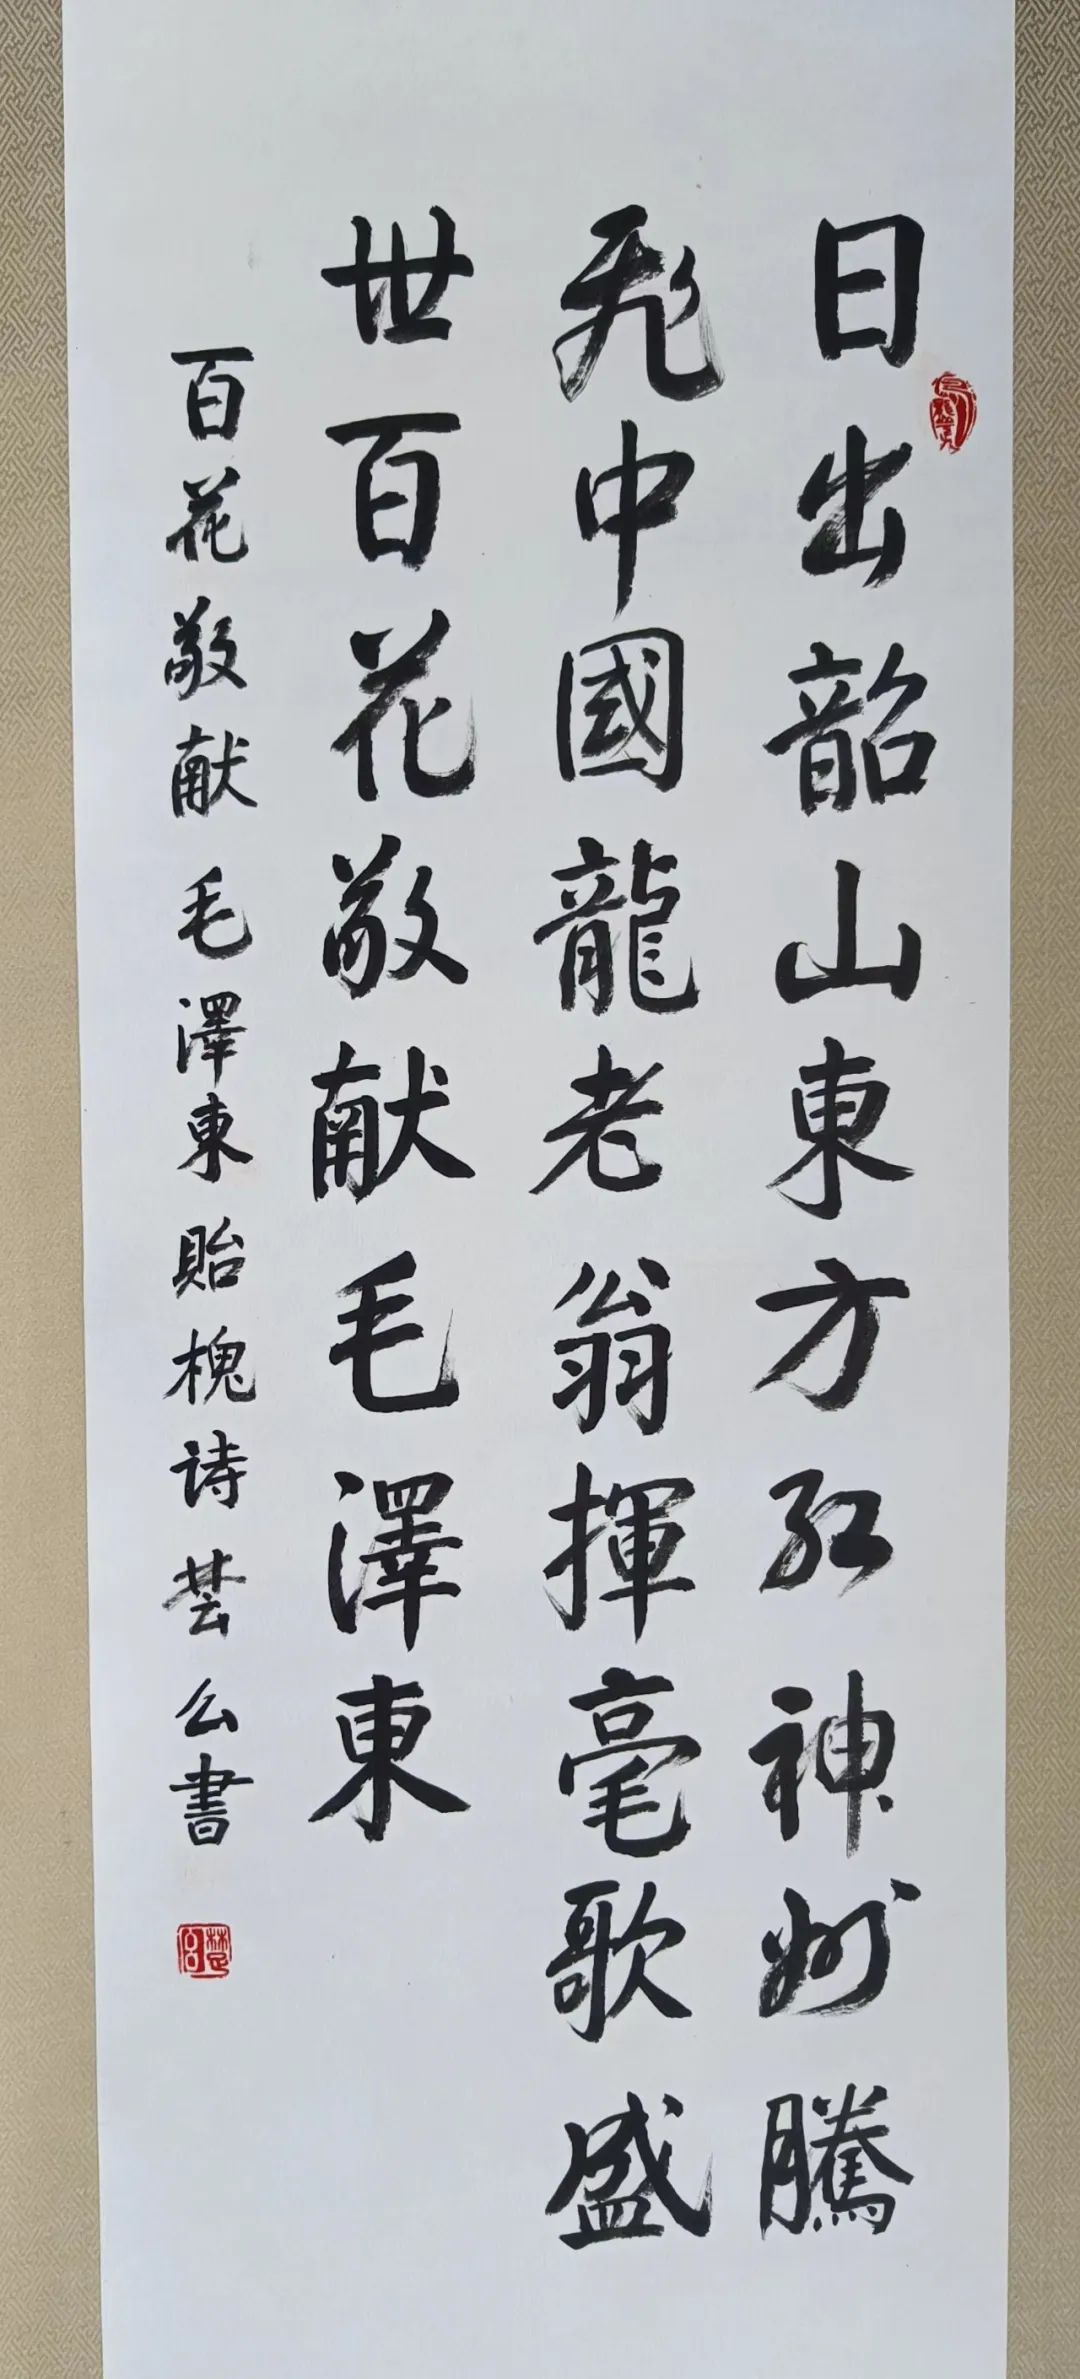 日出韶山東方红神州騰
飛中國龍老翁揮毫歌盛
世百花敬献毛澤東
百花敬献毛澤東贻槐诗芸么書